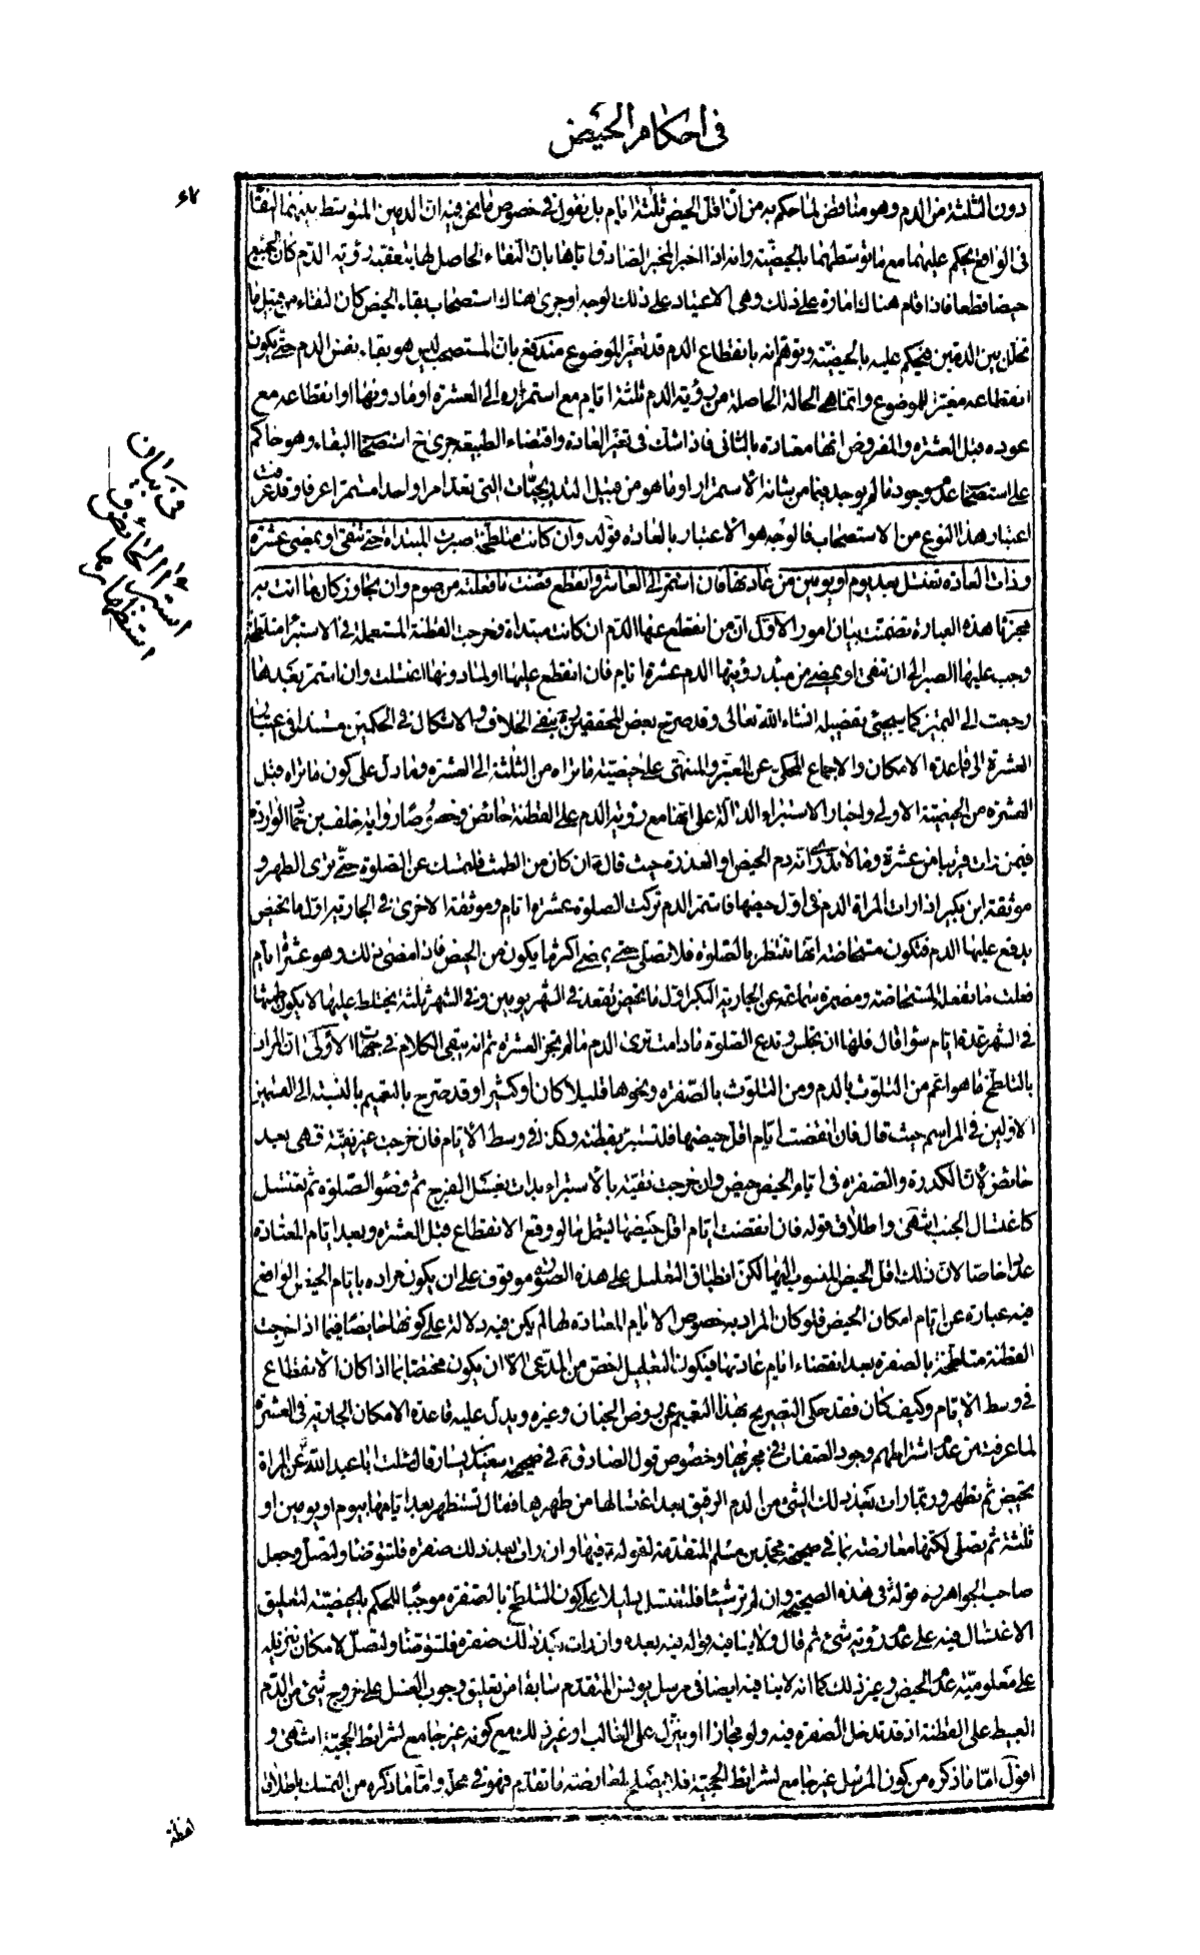 في احكام الحيض
دون الثلثة من الدم وهو مناقض لما حكم به من ان اقل الحيض ثلثة ايام بل نقول في خصوص ما نحن فيه ان الدمين المتوسط بينهما النقا
في الواقع يحكم عليهما مع ما توسطهما بالحيضية وانه اذا اخبر المخبر الصادق بان النقاء الحاصل لها يتعقبه رؤية الدم كان الجميع
حيضا قطعا فاذا قام هناك امارة على ذلك وهي الاعتياد على ذلك لوجه او جرى هناك استصحاب بقاء الحيض كان النقاء من قبيل ما
تخلل بين الدمين فيحكم عليه بالحيضية وتوهم انه بانقطاع الدم قد تغير الموضوع مندفع بان المستصحب ليس هو بقاء نفس الدم حتى يكون
انقطاعه مغيرا للموضوع وانما هي الحالة الحاصلة من رؤية الدم ثلثة ايام مع استمراره الى العشرة او ما دونها او انقطاعه مع
عوده قبل العشرة والمفروض انها معتادة بالثاني فاذا شك في تغير العادة واقتضاء الطبيعة جرى ح استصحاب البقاء وهو حاكم
على استصحاب عدم وجود ما لم يوجد فيما من شانه الاستمرار او ما هو من قبيل التدريجيات التي تعد امرا واحدا مستمرا عرفا وقد عرفت
اعتبار هذا النوع من الاستصحاب فالوجه هو الاعتبار بالعادة قوله وان كانت متلطخة صبرت المبتداة حتى تنقى او يمضي عشرة
وذات العادة تغتسل بعد يوم او يومين من عادتها فان استمر الى العاشر وانقطع قضت ما فعلته من صوم وان تجاوز كان ما اتت به
مجزيا هذه العبارة تضمنت بيان امور الاول ان من انقطع عنها الدم ان كانت مبتداة فخرجت القطنة المستعملة في الاستبراء متلطخة
وجب عليها الصبر الى ان تنقى او يمضي من مبدء رؤيتها الدم عشرة ايام فان انقطع عليها او لما دونها اغتسلت وان استمر بعدها
رجعت الى التميز كما سيجئ تفصيله انشاء الله تعالى وقد صرح بعض المحققين ره بنفي الخلاف والاشكال في الحكمين مستندا في
العشرة الى قاعدة الامكان والاجماع المحكي عن المعتبر والمنتهى على حيضية ما تراه من الثلثة الى العشرة وما دل على كون ما تراه قبل
العشرة من الحيضة الاولى واخبار الاستبراء الدالة على انها مع رؤية الدم على القطنة حائض وخصوصا رواية خلف بن حماد الواردة
فيمن رات قريبا من عشرة وما لا تدري انه دم الحيض او العذرة حيث قال ان كان من الطمث فلتمسك عن الصلوة حتى ترى الطهر و
موثقة ابن بكير اذا رات المراة الدم في اول حيضها فاستمر الدم تركت الصلوة عشرة ايام وموثقته الاخرى في الجارية اول ما تحيض
يدفع عليها الدم فتكون مستحاضة انها تنتظر بالصلوة فلا تصلي حتى يمضي اكثر ما يكون من الحيض فاذا مضى ذلك وهو عشرة ايام
فعلت ما تفعله المستحاضة ومضمرة سماعة عن الجارية البكر اول ما تحيض تقعد في الشهر يومين وفي الشهر ثلثة يختلط عليها لا يكون طمثها
في الشهر عدة ايام سواء قال فلها ان تجلس وتدع الصلوة ما دامت ترى الدم ما لم تجز العشرة ثم انه يبقى الكلام في جهات الاولى ان المراد
بالتلطخ ما هو اعم من التلوث بالدم ومن التلوث بالصفرة ونحوها قليلا كان او كثيرا وقد صرح بالتعميم بالنسبة الى القسمين
الاولين في المراسم حيث قال فان انقضت ايام اقل حيضها فلتستبر بقطنة وكل في وسط الايام فان خرجت غير نقية فهي بعد
حائض لان الكدرة والصفرة في ايام الحيض حيض وان خرجت نقية بالاستبراء بدات بغسل الفرج ثم وضوء الصلوة ثم تغتسل
كاغتسال الجنب انتهى واطلاق قوله فان انقضت ايام اقل حيضها ليشمل ما لو وقع الانقطاع قبل العشرة وبعد ايام المعتادة
عددا خاصا لان ذلك اقل الحيض المنسوب اليها لكن انطباق التعليل على هذه الصورة موقوف على ان يكون مراده بايام الحيض الواقع
فيه عبارة عن ايام امكان الحيض فلو كان المراد به خصوص الايام المعتادة لها لم يكن فيه دلالة على كونها حايضا فيما اذا خرجت
القطنة متلطخة بالصفرة بعد انقضاء ايام عادتها فيكون التعليل اخص من المدعى الا ان يكون مختصا بما اذا كان الانقطاع
في وسط الايام وكيف كان فقد حكى التصريح بهذا التعميم عن روض الجنان وغيره ويدل عليه قاعدة الامكان الجارية في العشرة
لما عرفت من عدم اشتراطهم وجود الصفات في مجريها وخصوص قول الصادق ع في صحيحة سعيد بن يسار قال سئلت ابا عبد الله ع عن المراة
تحيض ثم تطهر وربما رات بعد ذلك الشئ من الدم الرقيق بعد اغتسالها من طهرها فقال تستظهر بعد ايامها بيوم او يومين او
ثلثة ثم تصلي لكنها معارضة بما في صحيحة محمد بن مسلم المتقدمة لقوله ع فيها وان رات بعد ذلك صفرة فلتتوضا ولتصل وجعل
صاحب الجواهر ره قوله ع في هذه الصحيحة وان لم تر شيئا فلتغتسل دليلا على كون التلطخ بالصفرة موجبا للحكم بالحيضية لتعليق
الاغتسال فيه على عدم رؤية شئ ثم قال ولا ينافيه قوله فيه بعده وان رات بعد ذلك صفرة فلتتوضا ولتصل لامكان تنزيله
على معلومية عدم الحيض وغير ذلك كما انه لا ينافيه ايضا في مرسل يونس المتقدم سابقا من تعليق وجوب الغسل على خروج شئ من الدم
العبيط على القطنة اذ قد تدخل الصفرة فيه ولو مجازا او ينزل على الغالب او غير ذلك مع كونه غير جامع لشرائط الحجية انتهى و
اقول اما ما ذكره من كون المرسل غير جامع لشرائط الحجية فلا يصلح لمعارضة ما تقدم فهو في محله واما ما ذكره من التمسك باطلاق
في بيان
استبراء الحائض و
استظهارها
لفظة